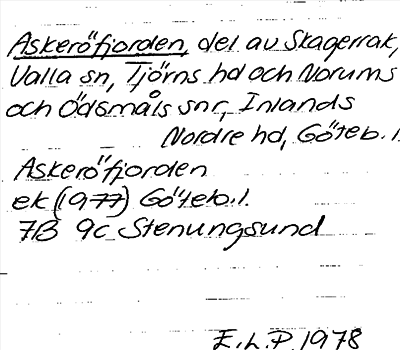 Askeröfjorden, del av Skagerrak,
Valla sn, Tjörns hd och Norums
och Ödsmåls snr, Inlands
Nordre hd, Göteb. l.
Askeröfjorden
ek (1977) Göteb. l.
7B 9c Stenungsund
E.L.P. 1978